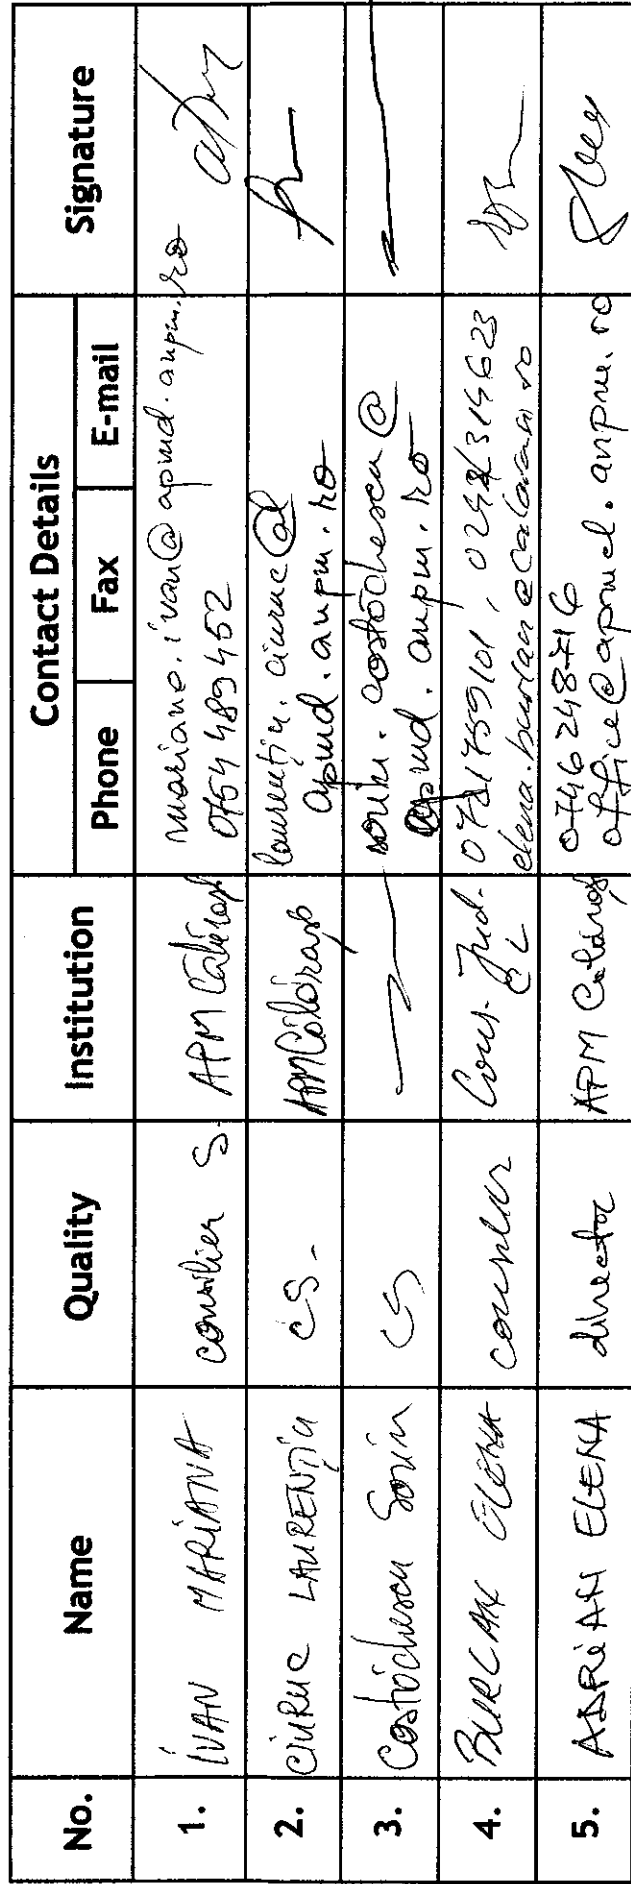 No. Name Quality Institution Contact Details Signature
Phone Fax E-mail
1. IVAN MARIANA consilier S. APM Călărași mariana.ivan@apmcl.anpm.ro
0754 489 452
2. CIURUC LAURENȚIU CS. APM Călărași laurentiu.ciuruc@
apmcl.anpm.ro
3. Costăchescu Sorin CS sorin.costăchescu@
apmcl.anpm.ro
4. BURLAN ELENA consilier Cons. Jud. CL
elena.burlan@calarasi.ro
5. ADRIAN ELENA director APM Călărași 0746248716
office@apmcl.anpm.ro